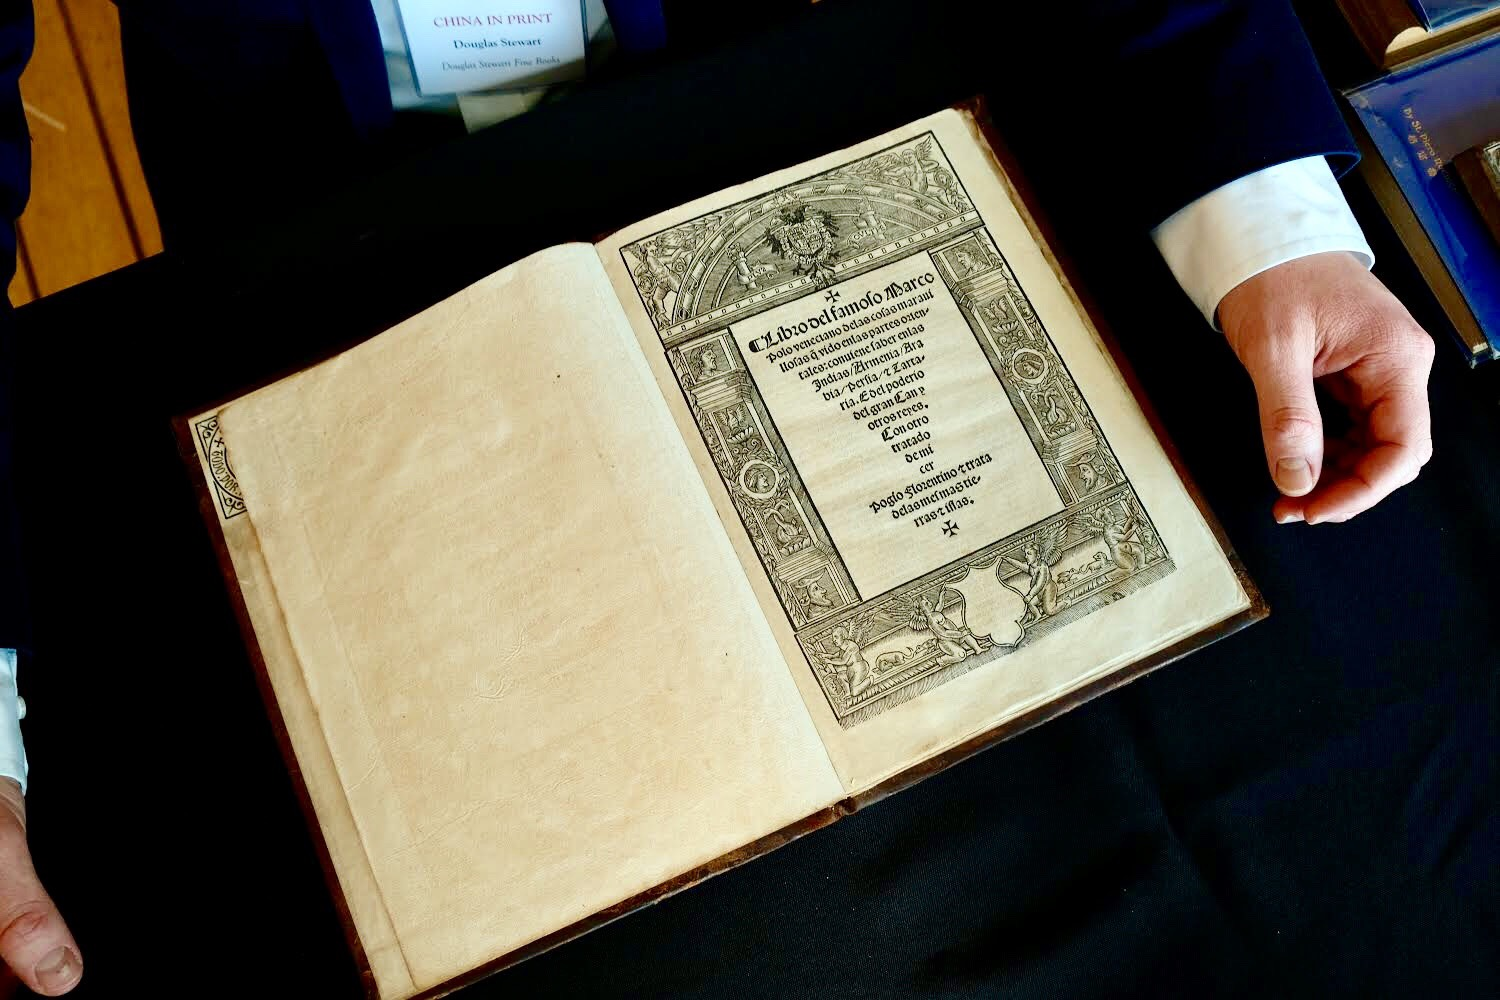 CHINA IN PRINT
Douglas Stewart
Douglas Stewart Fine Books
Libro del famoso Marco
Polo veneciano delas cosas maraui
llosas q̃ vido enlas partes orien-
tales: conuiene saber enlas
Indias/Armenia/Ara
bia/Persia/⁊ Tarta-
ria. E del poderio
del gran Can y
otros reyes.
Con otro
tratado
de mi
cer
Pogio Florentino ⁊ trata
delas mesmas tie-
rras ⁊ islas.
By